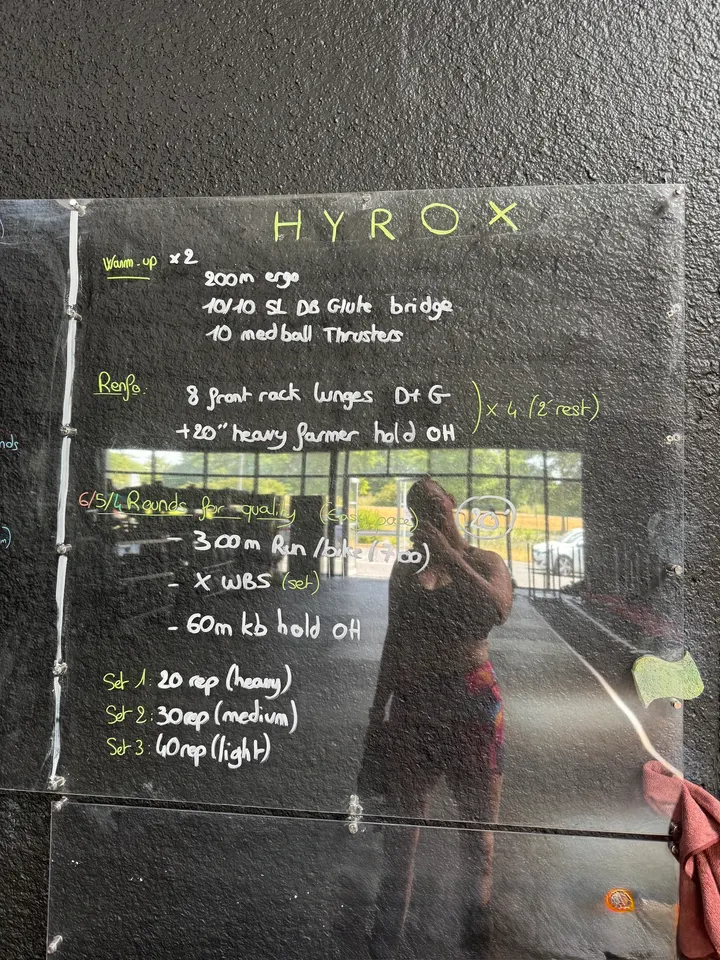 HYROX
Warm-up x2
200m ergo
10/10 SL DB Glute bridge
10 medball Thrusters
Renfo.
8 front rack lunges D+G
+20" heavy farmer hold OH
) x 4 (2' rest)
6/5/4 Rounds for quality (easy pace) 20'
- 300m Run/bike (700)
- X WBS (set)
- 60m kb hold OH
Set 1: 20 rep (heavy)
Set 2: 30rep (medium)
Set 3: 40rep (light)